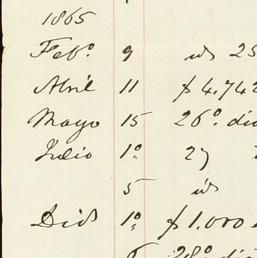 1865
Febº. 9 id 25
Abril 11 $4,742
Mayo 15 26º. div
Julio 1º 27
5 id
Did 1º $1.000
28º di